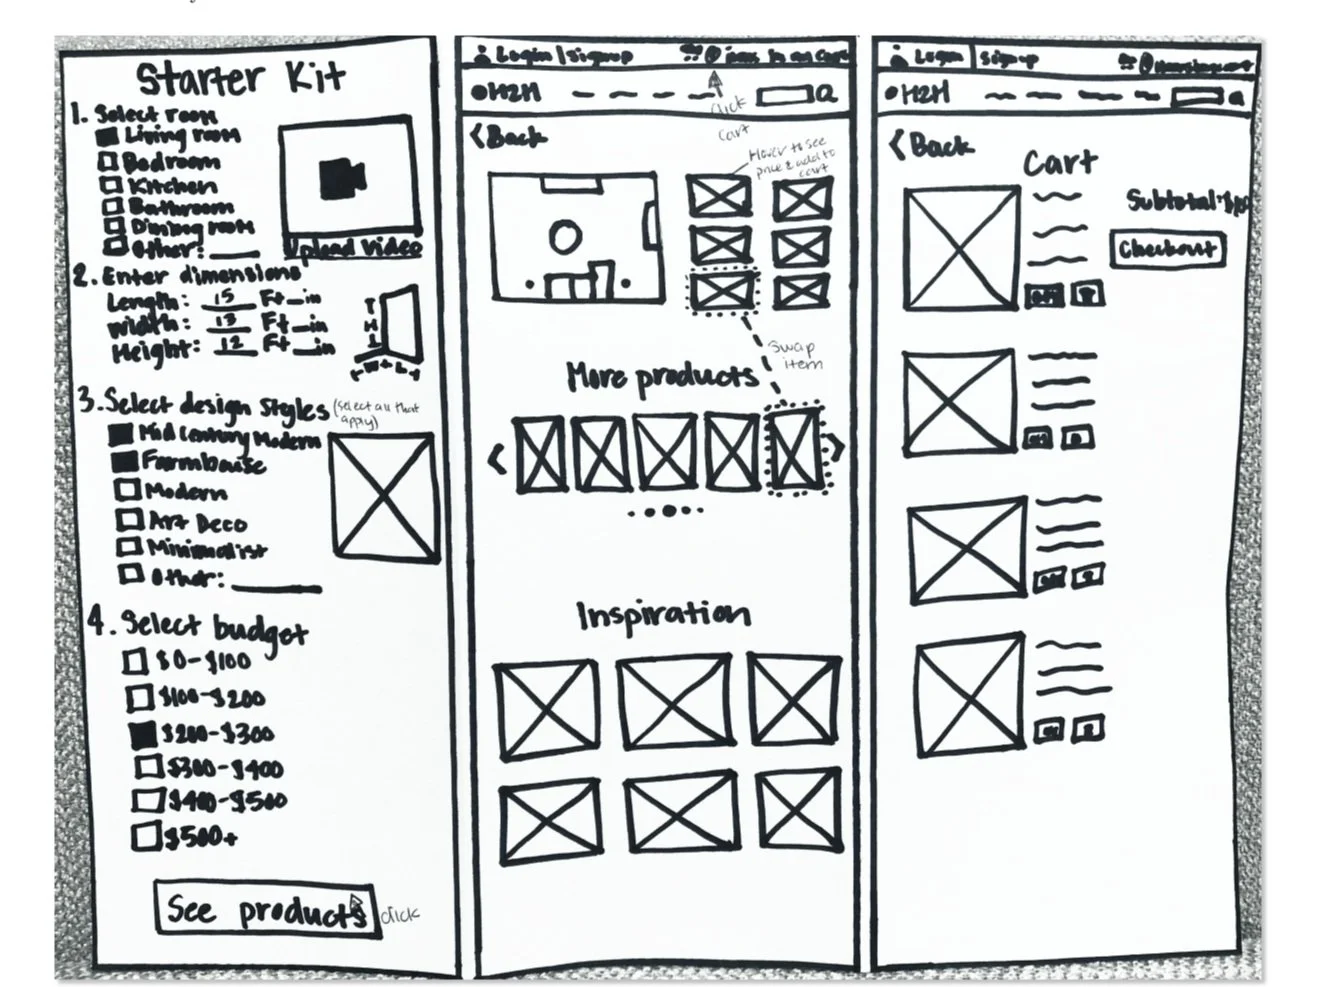 Starter Kit
1. Select room
Living room
Bedroom
Kitchen
Bathroom
Dining room
Other:
Upload Video
2. Enter dimensions
Length: 15 Ft in
Width: 13 Ft in
Height: 12 Ft in
H
W L
3. Select design Styles (select all that
apply)
Mid Century Modern
Farmhouse
Modern
Art Deco
Minimalist
Other:
4. Select budget
$0-$100
$100-$200
$200-$300
$300-$400
$400-$500
$500+
See products
click
Login | Signup
H2H
click
cart
< Back
Hover to see
price & add to
cart
Swap
item
More products
Inspiration
Login | Signup
H2H
< Back
Cart
Subtotal:
Checkout